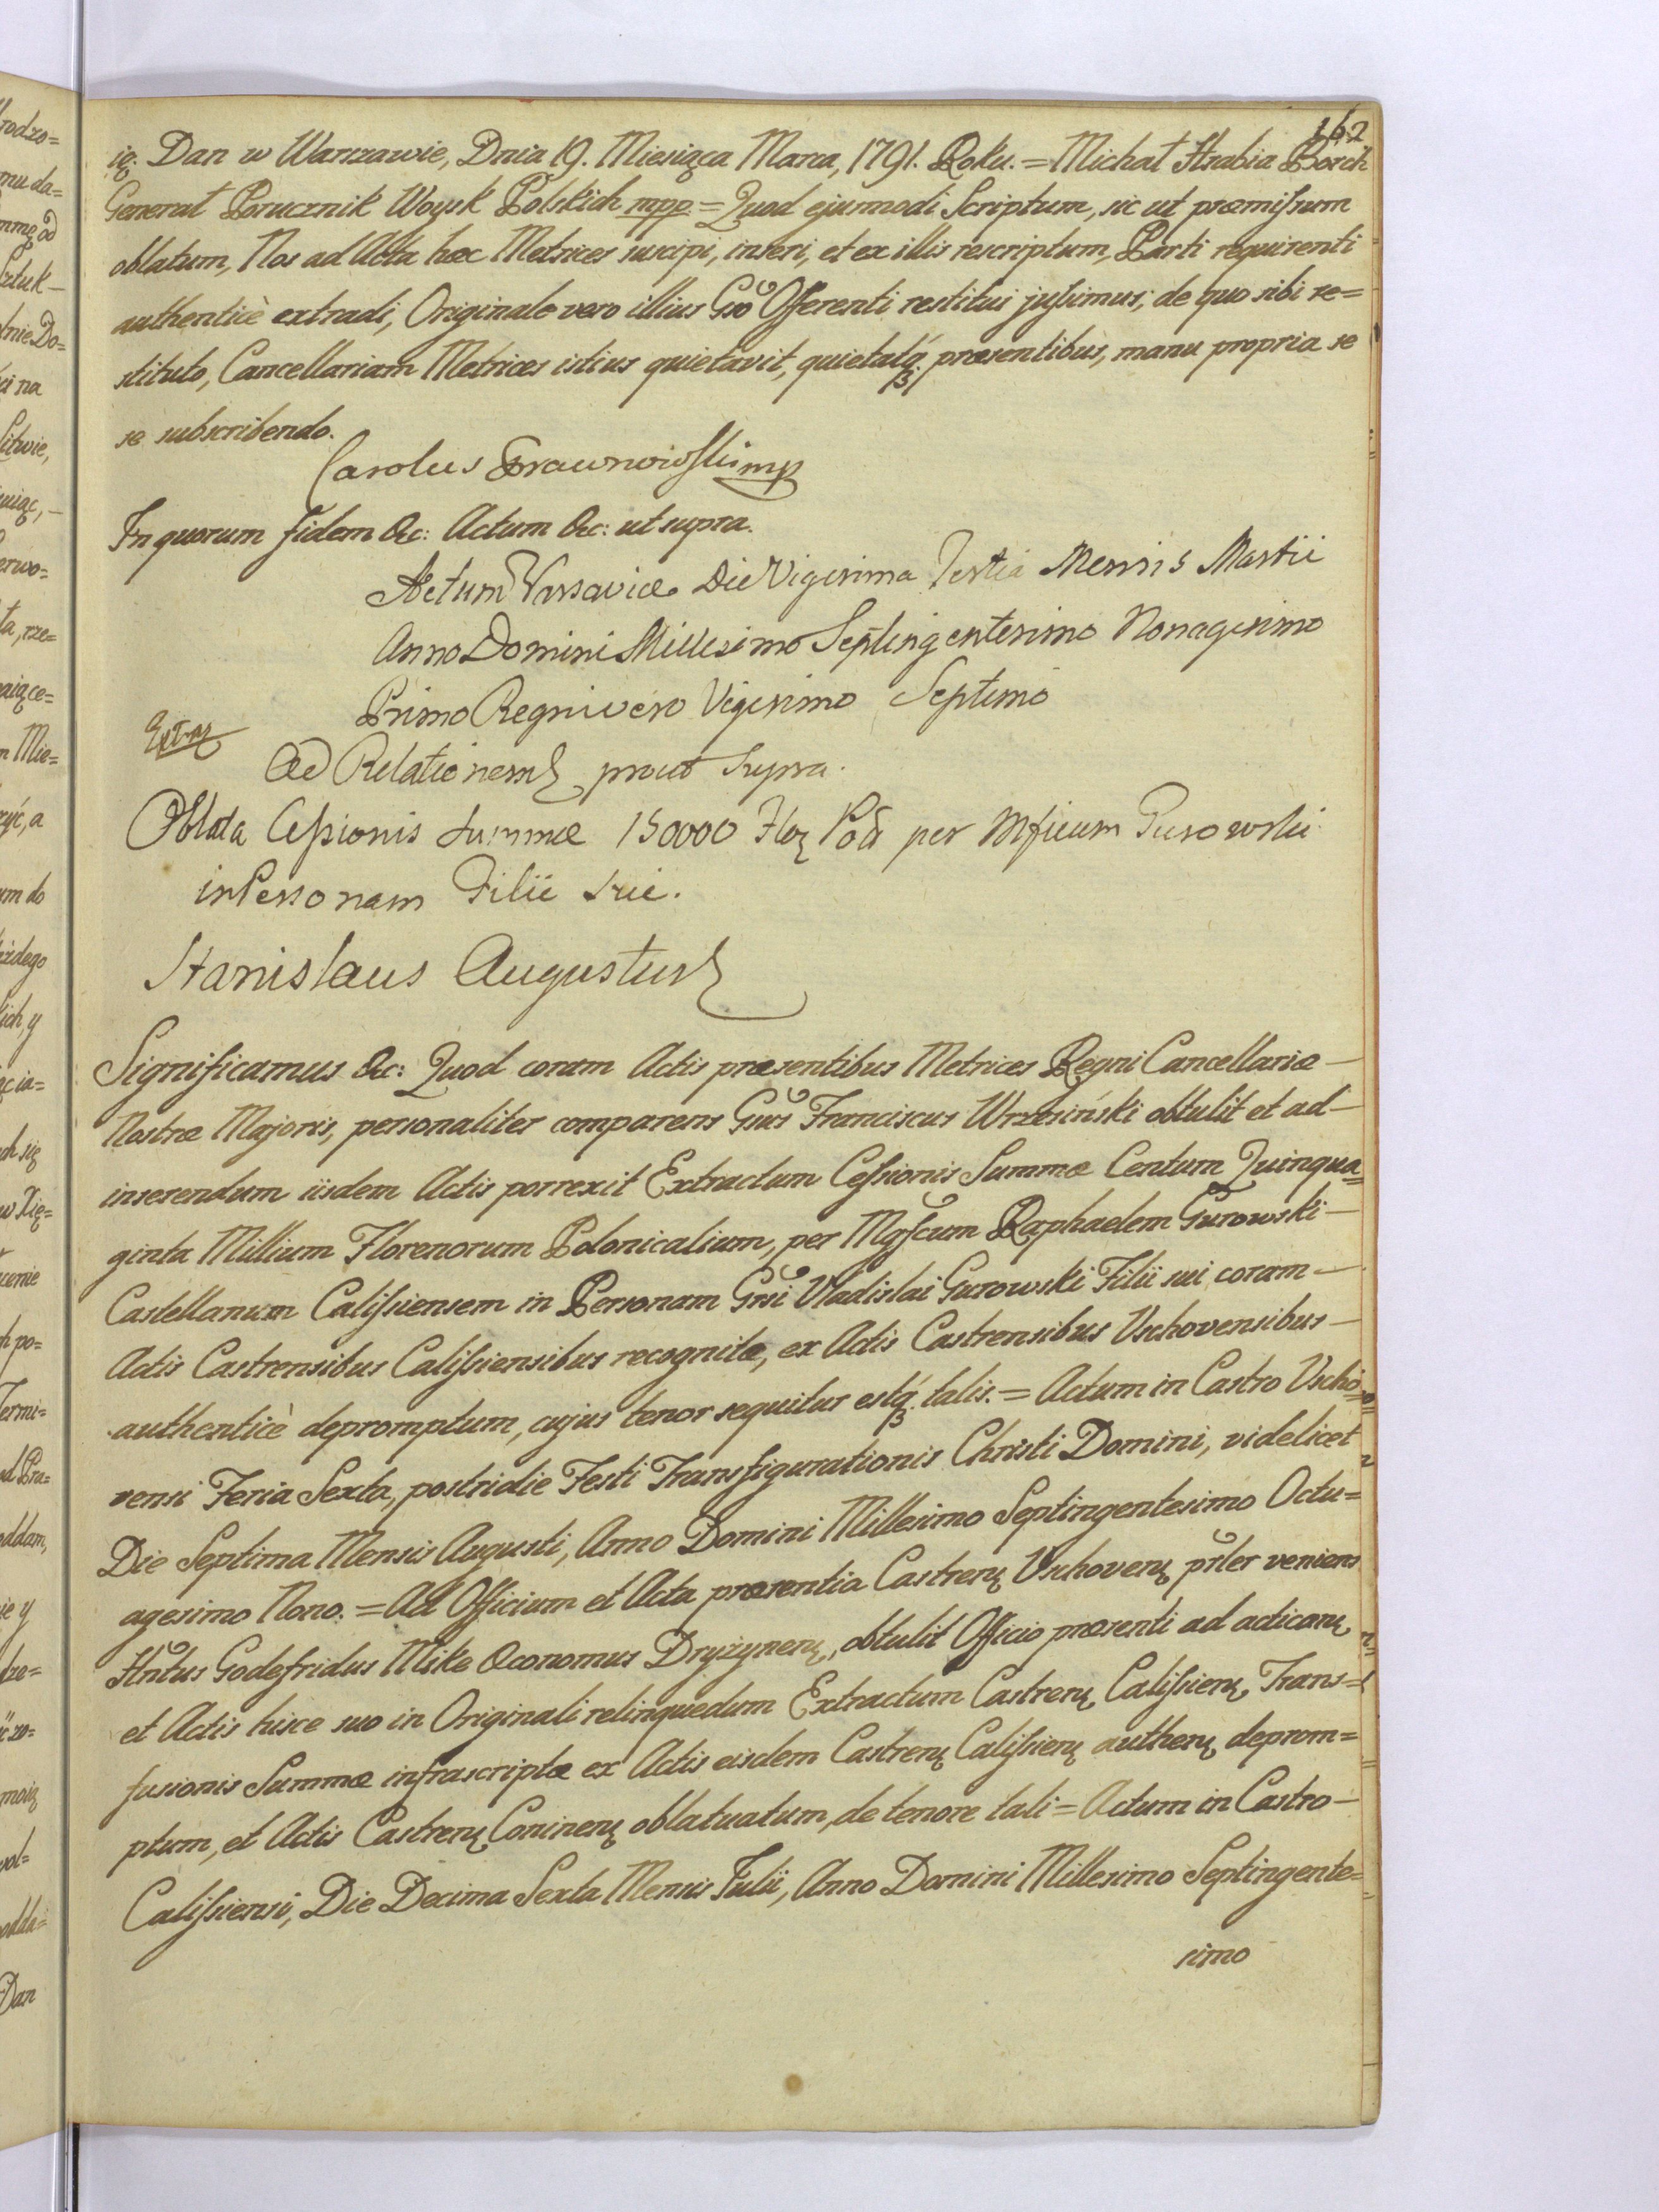 162
ię. Dan w Warszawie, Dnia 19. Miesiąca Marca, 1791. Roku. = Michał Hrabia Borch
Generał Porucznik Woysk Polskich mpp = Quod ejusmodi Scriptum, sic ut præmissum
oblatum, Nos ad Acta hæc Metrices suscipi, inseri, et ex illis rescriptum, Parti requirenti
authenticè extradi, Originale vero illius Gso Offerenti restitui jussimus; de quo sibi re=
stituto, Cancellariam Metrices istius quietavit, quietatq́ præsentibus, manu propria se
se subscribendo.
Carolus mp
In quorum fidem &c: Actum &c: ut supra.
Actum Varsaviæ Die Vigesima Tertia Mensis Martii
Anno Domini Millesimo Septingentesimo Nonagesimo
Primo Regni vero Vigesimo Septimo
Ad Relationem prout Supra.
Oblata Cessionis Summæ 150000 Flor Pol per Mficum Gurowski
in Personam Filii sui.
Stanislaus Augustus
Significamus &c: Quod coram Actis præsentibus Metrices Regni Cancellariæ —
Nostræ Majoris, personaliter comparens Gsus Franciscus Wrzesiński obtulit et ad —
inserendum iisdem Actis porrexit Extractum Cessionis Summæ Centum Quinqua=
ginta Millium Florenorum Polonicalium, per Mgfcum Raphaelem Gurowski —
Castellanum Calissiensem in Personam Gsi Vladislai Gurowski Filii sui coram —
Actis Castrensibus Calissiensibus recognitæ, ex Actis Castrensibus Vschovensibus —
authenticè depromptum, cujus tenor sequitur estq́ talis. = Actum in Castro Vscho=
vensi Feria Sexta, postridie Festi Transfigurationis Christi Domini, videlicet
Die Septima Mensis Augusti, Anno Domini Millesimo Septingentesimo Octu=
agesimo Nono. = Ad Officium et Acta præsentia Castren Vschoven psler veniens
Hntus Godefridus Mike Œconomus Dryżynen, obtulit Officio præsenti ad acticand
et Actis hisce suo in Originali relinquedum Extractum Castren Calissien, Trans=
fusionis Summæ infrascriptæ ex Actis eisdem Castren Calissien authen deprom=
ptum, et Actis Castren Coninen oblatuatum, de tenore tali = Actum in Castro —
Calissiensi, Die Decima Sexta Mensis Julii, Anno Domini Millesimo Septingente=
simo